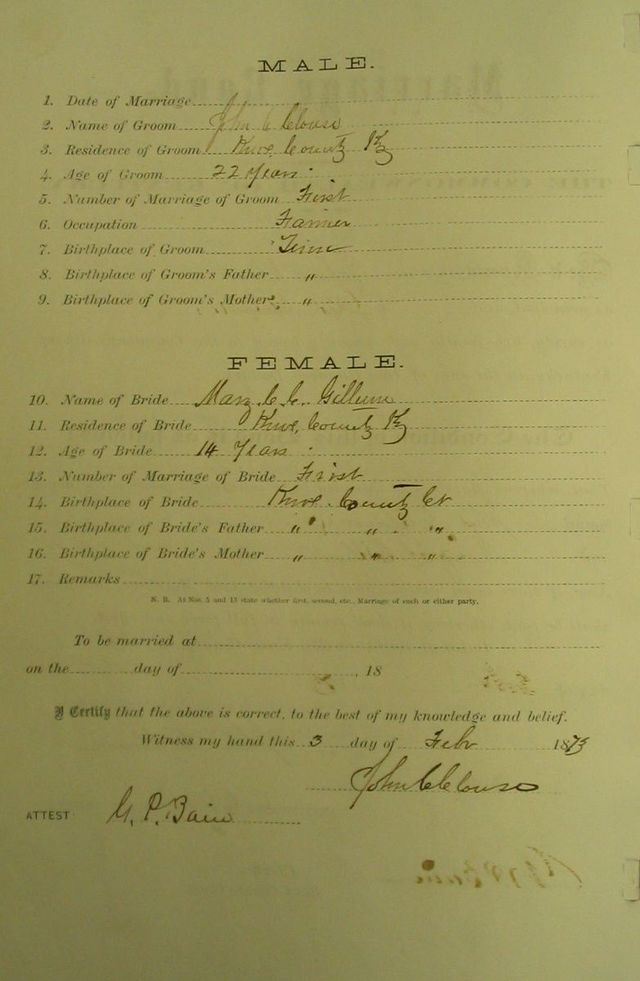 MALE.
1. Date of Marriage
2. Name of Groom John C Clouse
3. Residence of Groom Knox County Ky
4. Age of Groom 22 Years
5. Number of Marriage of Groom First
6. Occupation Farmer
7. Birthplace of Groom Tenn
8. Birthplace of Groom's Father "
9. Birthplace of Groom's Mother "
FEMALE.
10. Name of Bride Mary C. C. Gillum
11. Residence of Bride Knox County Ky
12. Age of Bride 14 Years
13. Number of Marriage of Bride First
14. Birthplace of Bride Knox County
15. Birthplace of Bride's Father " " "
16. Birthplace of Bride's Mother " " "
17. Remarks
N. B. At Nos. 5 and 13 state whether first, second, etc., Marriage of each or either party.
To be married at
on the day of , 18
I Certify that the above is correct, to the best of my knowledge and belief.
Witness my hand this 3 day of Feby 1873
John C Clouse
ATTEST: G. P. Bain